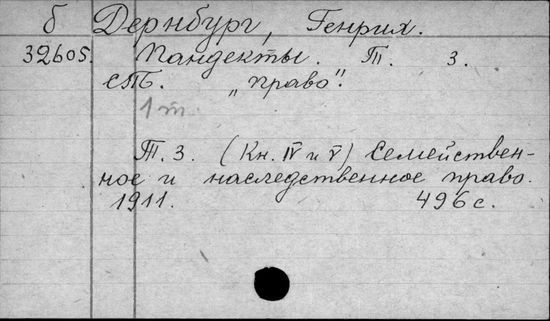 б Дернбург, Генрих.
32605. Пандекты. Т. 3.
„право".
1 т.
Т. 3. (Кн. IV и V) Семействен-
ное и наследственное право.
1911. 496 с.